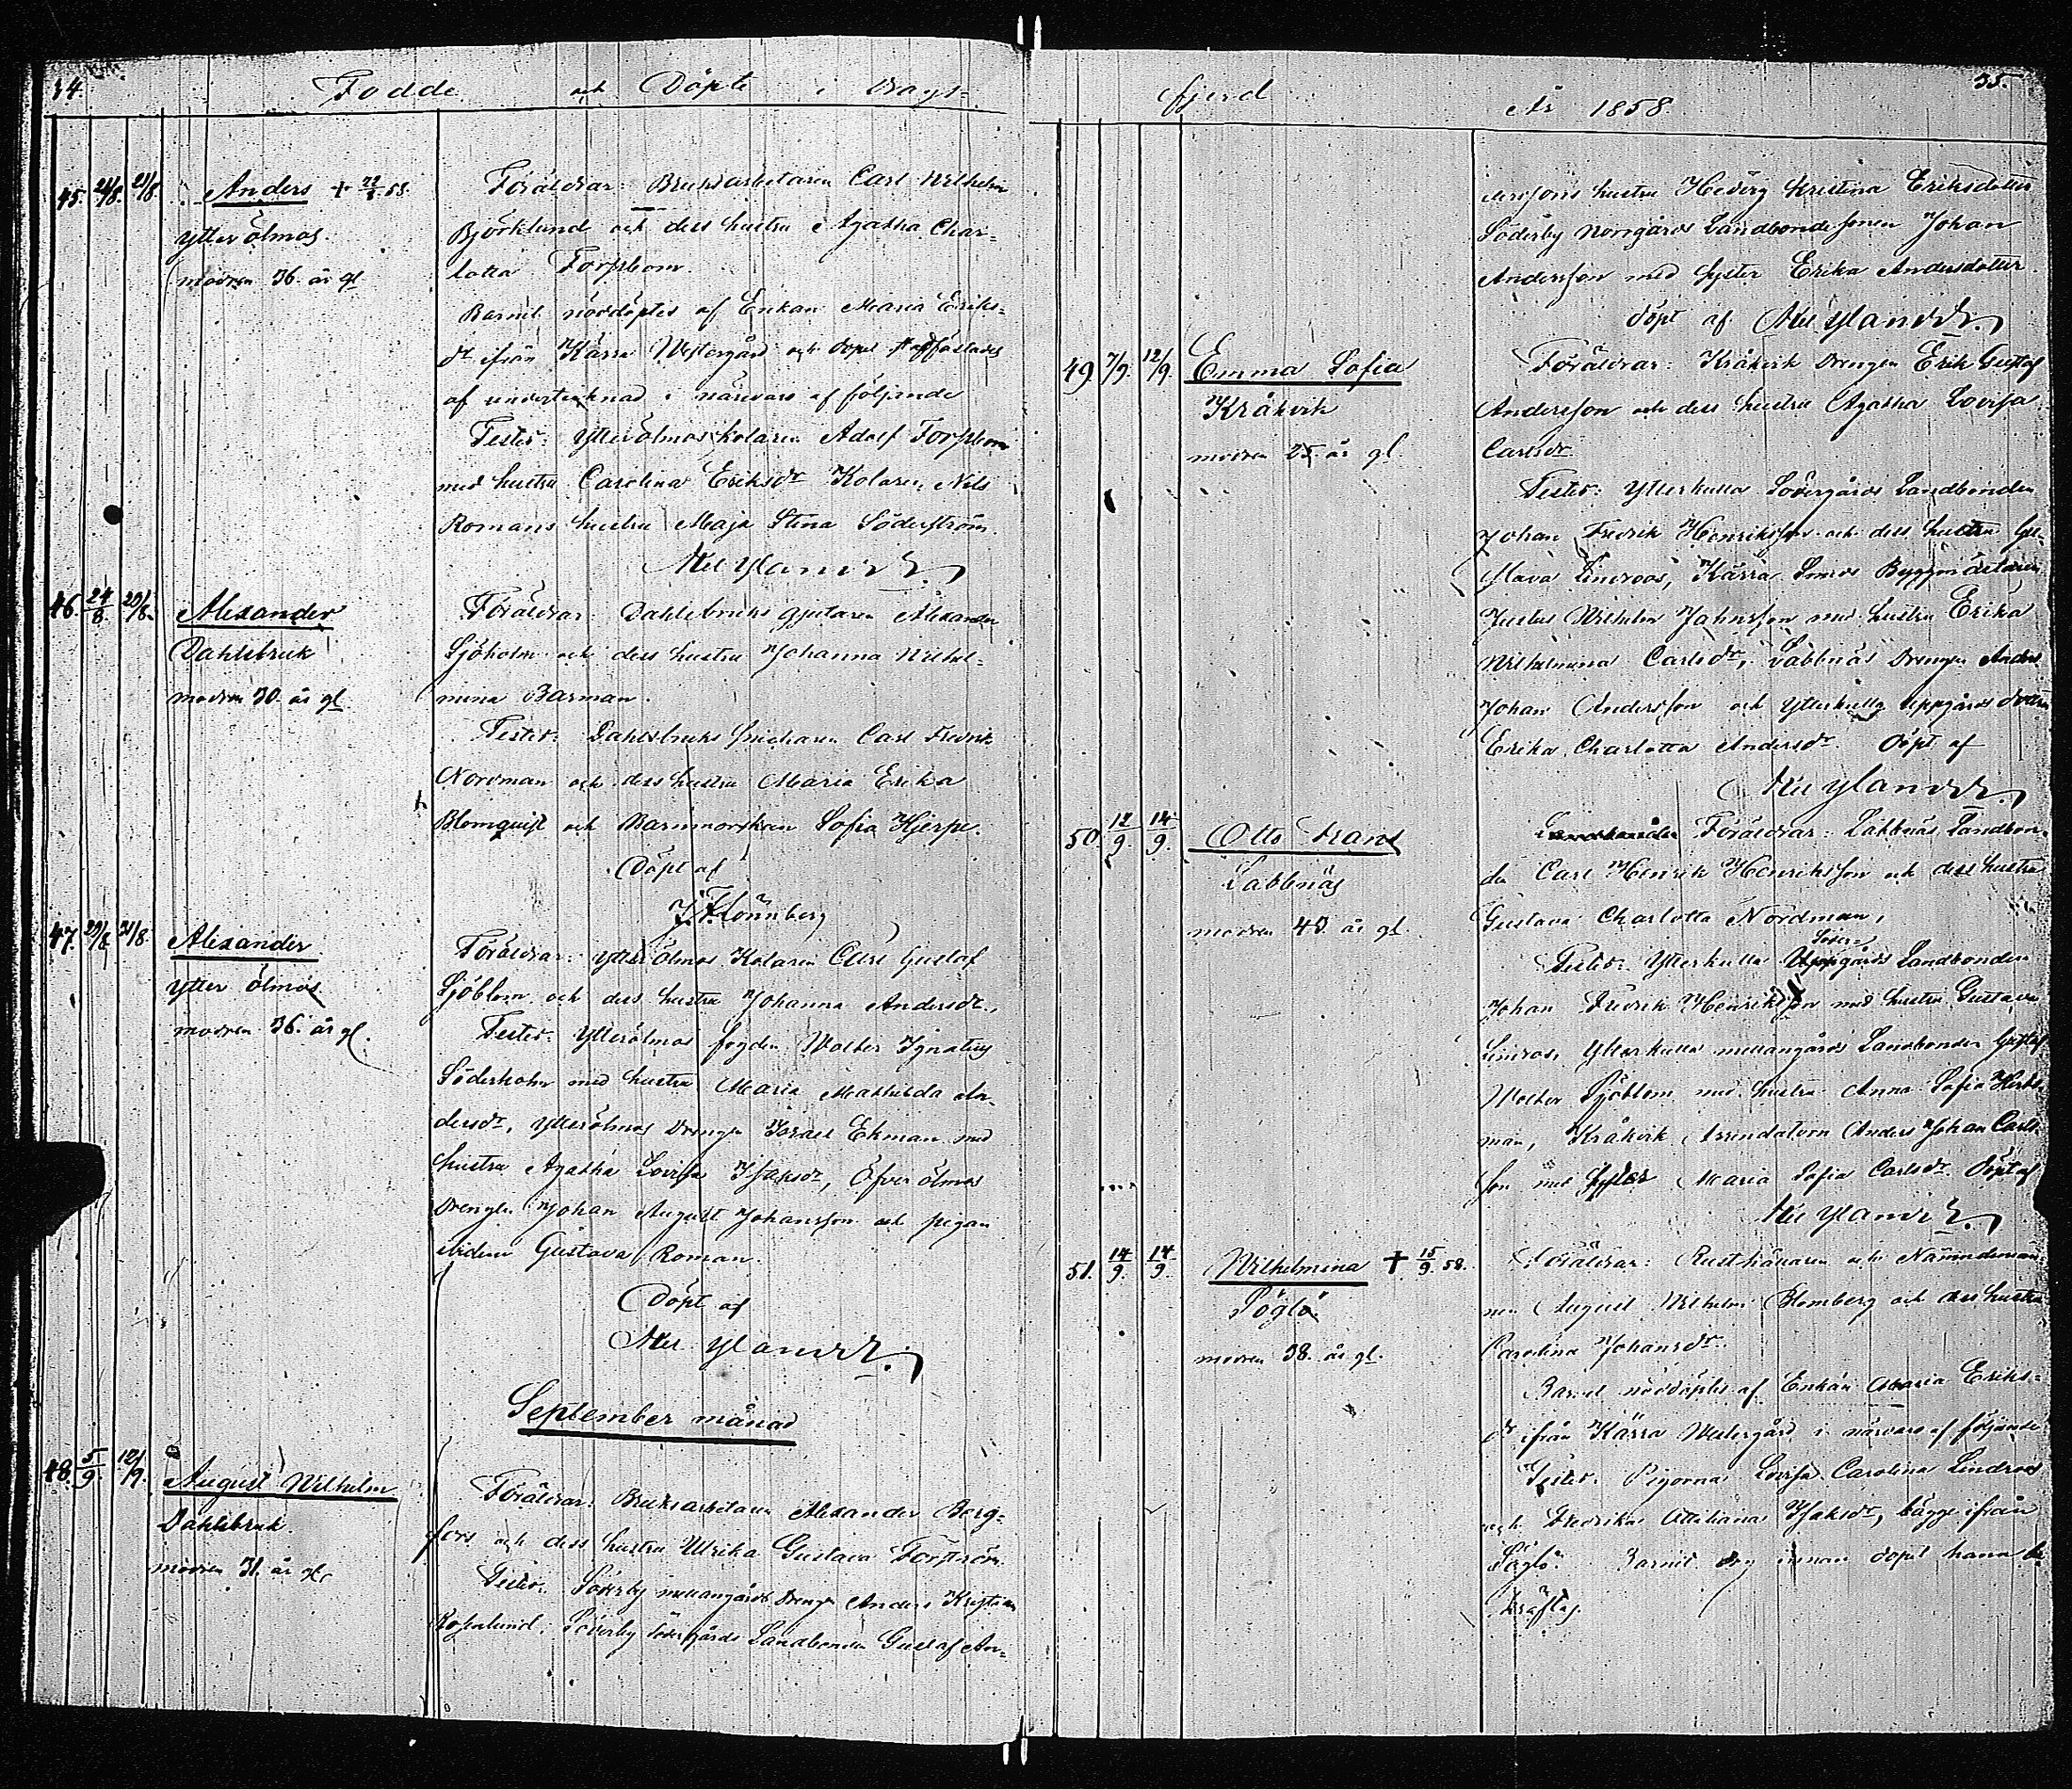 34.
Födde och Döpte i Drags=
45. 21/8. 21/8. Anders + 58.
Ytter Ölmos.
modren 36. år gl
Föräldrar: Bruksarbetaren Carl Wilhelm
Björklund och dess hustru Agatha Char=
lotta Forsblom.
Barnet nöddöptes af Enkan Maria Eriks=
dr ifrån Kärra Westergård och dopet
af undertecknad i närvaro af följande
Tester: Ytterölmos kolaren Adolf Forsblom
med hustru Carolina Eriksdr Kolaren Nils
Romans hustru Maja Stina Söderström.
Nylander.
46. 24/8. 29/8. Alexander
Dahlsbruk
modren 30. år gl
Föräldrar: Dahlsbruks gjutaren Alexander
Sjöholm och dess hustru Johanna Wilhel=
mina Barman.
Tester: Dahlsbruks smeden Carl Fredrik
Nordman och dess hustru Maria Erika
Blomquist och Barnmorskan Sofia Hjerpe.
Döpt af
J. F. Lönnberg
47. 29/8. 31/8. Alexander
Ytter Ölmos
modren 36. år gl.
Föräldrar: Ytter Ölmos Kolaren Carl Gustaf
Sjöblom och dess hustru Johanna Andersdr.
Tester: Ytterölmos fogden Walter Ignatius
Söderholm med hustru Maria Mathilda An-
dersdr, Ytterölmos Drengen Israel Ekman med
hustru Agatha Lovisa Isaksdr, Öfver ölmos
Drengen Johan August Johansson och pigan
Gustava Roman.
Döpt af
Nylander.
September månad
48. 5/9. 12/9. August Wilhelm
Dahlsbruk.
modren 31. år gl.
Föräldrar: Bruksarbetaren Alexander Berg=
fors och dess hustru Ulrika Gustava Forström
Tester: Söderby mellangårds Drengen Anders Kristian
Rosenlund, Söderby Södergårds Landbonden Gustaf An=
fjerd År 1858.
35.
derssons hustru Hedvig Kristina Eriksdotter
Söderby Norrgårds Landbondesonen Johan
Andersson med syster Erika Andersdotter.
Döpt af Nylander.
49. 7/9. 12/9. Emma Sofia
Kråkvik
modren 25. år gl.
Föräldrar: Kråkvik Drengen Erik Gustaf
Andersson och dess hustru Agatha Lovisa
Carlsdr
Tester: Ytterkulla Södergårds Landbonden
Johan Fredrik Henriksson och dess hustru Gu-
stava Lindroos, Kärra Byggmästaren
Justus Wilhelm Jahnsson med hustru Erika
Wilhelmina Carlsdr, Labbnäs Drengen Anders
Johan Andersson och Ytterkulla Uppgårds dottern
Erika Charlotta Andersdr. Döpt af
Nylander.
50. 12/9. 14/9. Otto Frans
Labbnäs
modren 40. år gl.
Föräldrar: Labbnäs Landbon-
den Carl Henrik Henriksson och dess hustru
Gustava Charlotta Nordman,
Söder-
Tester: Ytterkulla Uppgårds Landbonden
Johan Fredrik Henriksson med hustru Gustava
Lindroos, Ytterkulla mellangårds Landbonden Gustaf
Walter Sjöblom med hustru Anna Sofia
man, Kråkvik Arrendatorn Anders Johan Carls-
son med syster Maria Sofia Carlsdr. Döpt af
Nylander.
51. 14/9. 14/9. Wilhelmina + 15/9. 58.
Söglö
modren 38. år gl.
Föräldrar: Rusthållaren och Nämndeman-
nen August Wilhelm Blomberg och dess hustru
Carolina Johansdr.
Barnet nöddöptes af Enkan Maria Eriks=
dr ifrån Kärra Westergård i närvaro af följande
Tester: Pigorna Lovisa Carolina Lindroos
och Fredrika Isaksdr, bägge ifrån
Söglö. Barnet dog innan dopet hann be
kräftas.